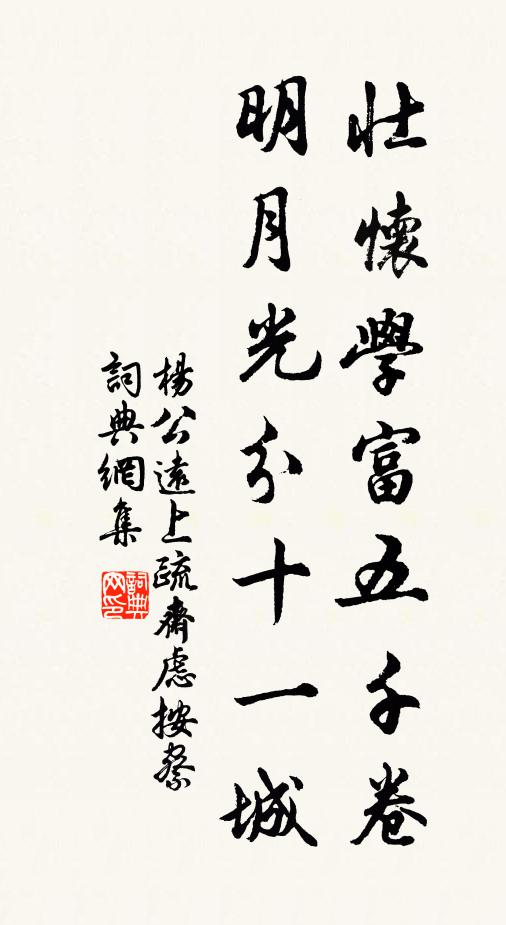 壯懷學富五千卷
明月光分十一城
楊公遠上疏齋慮按察
詞典網集
詞典網印